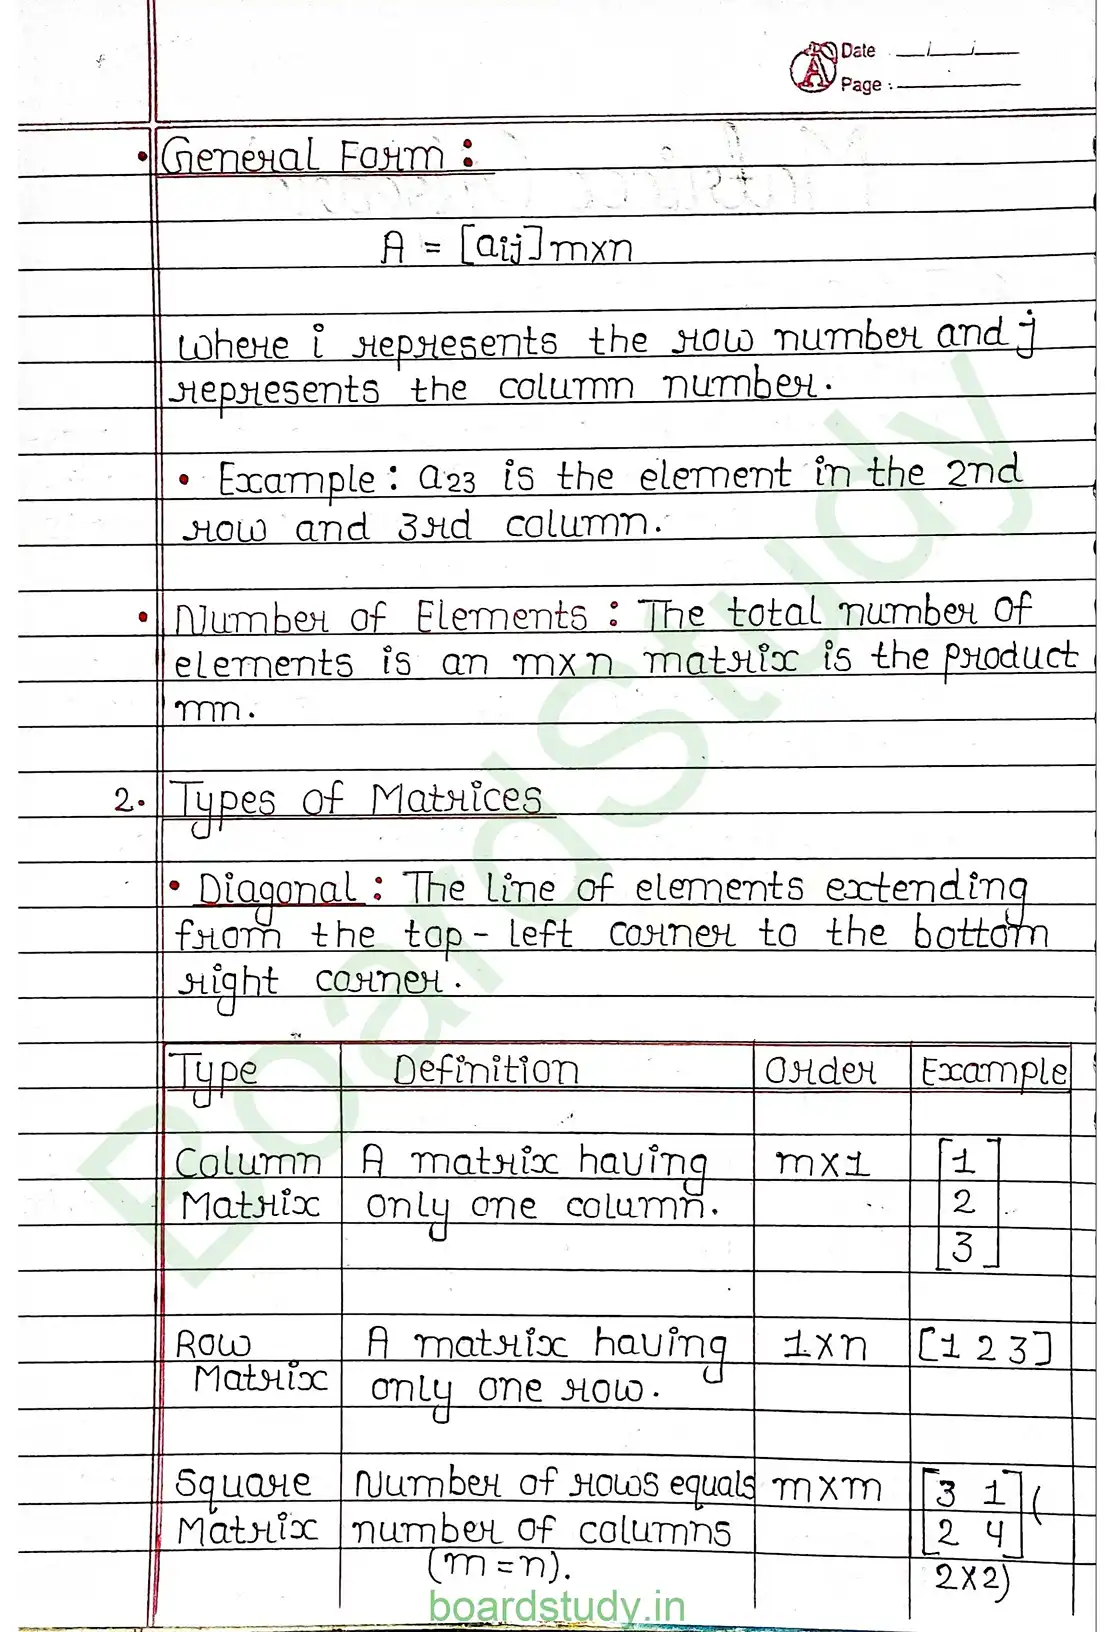 Date __/__/__
Page : ____
• General Form :
A = [aij]m×n
where i represents the row number and j
represents the column number.
• Example : a23 is the element in the 2nd
row and 3rd column.
• Number of Elements : The total number of
elements is an m×n matrix is the product
mn.
2. Types of Matrices
• Diagonal : The line of elements extending
from the top - left corner to the bottom
right corner.
Type Definition Order Example
Column A matrix having m×1 [1
Matrix only one column. 2
3]
Row A matrix having 1×n [1 2 3]
Matrix only one row.
Square Number of rows equals m×m [3 1 (
Matrix number of columns 2 4]
(m=n). 2×2)
BoardStudy
boardstudy.in